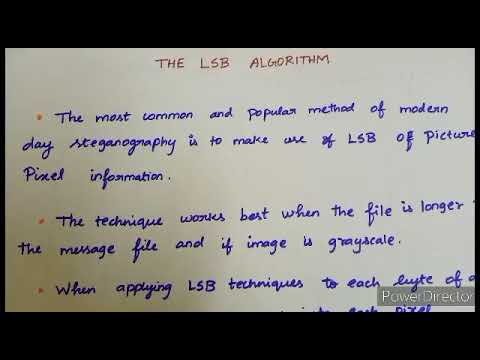 THE LSB ALGORITHM
• The most common and popular method of modern
day steganography is to make use of LSB of Picture
Pixel information.
• The technique works best when the file is longer
the message file and if image is grayscale.
• When applying LSB techniques to each byte of a
each pixel
PowerDirector